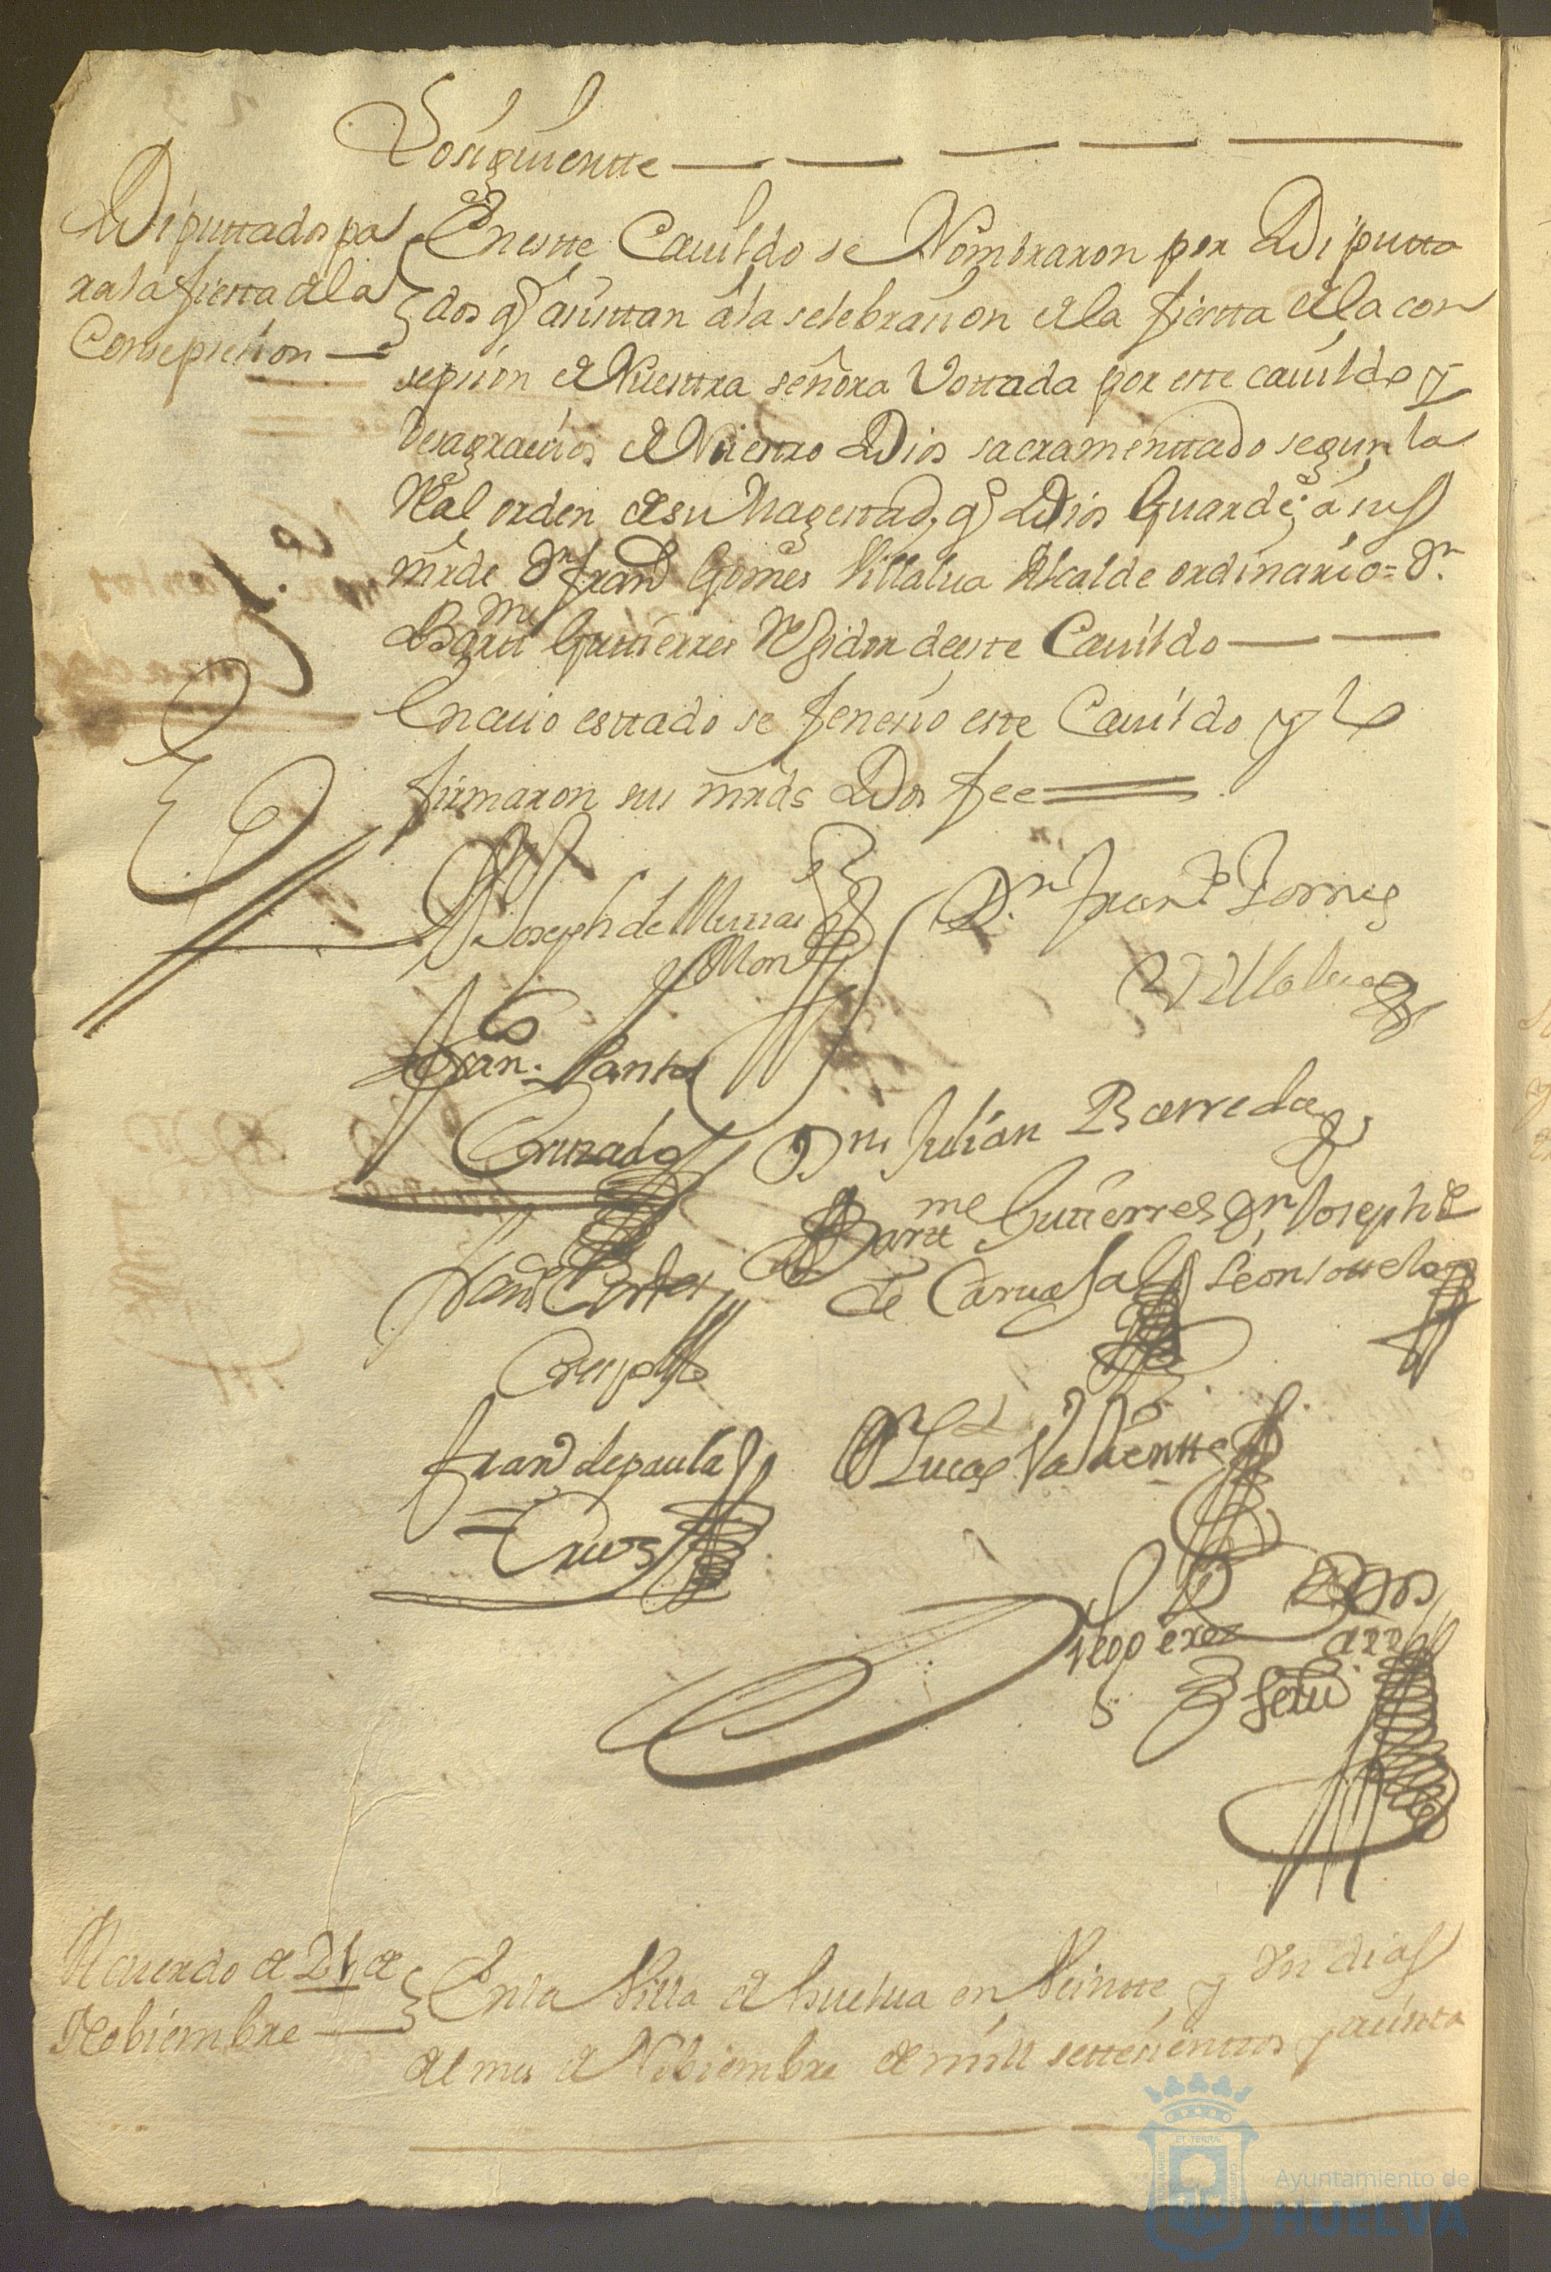 Losiguientte
Diputtados pa
ra la fiesta de la
Consepssion
En estte Cavildo se Nombraron por Diputta
dos q.e asistan á la selebrasion de la fiestta de la con
sepsion de Nuestra señora Vottada por este cavildo y
desagravios de Nuestro Dios sacramenttado segun la
Real orden de su Magestad, q.e Dios Guarde, á sus
mrde D.n Fran.co Gomes Villalva Alcalde ordinario = D.n
Bartt.me Gutierres Regidor deeste Cavildo
En cuio esttado se feneció este Cavildo y lo
firmaron sus mrds Doi fee
Joseph de
D.n Fran.co
Villalva
Fran.co Santos
Cruzado
D.n Julián Barreda
Bartt.me Gutierres
de Carvajal
D.n Joseph de
León sottelo
Fran.co Cortes
Crespo
Fran.co de paula
Cruz
D.n Lucas Valientte
Diego perez
Acuerdo de 21 de
Nobiembre
En la Villa de huelva en Veintte y un dias
del mes de Nobiembre de mill settesienttos
Ayuntamiento de
HUELVA